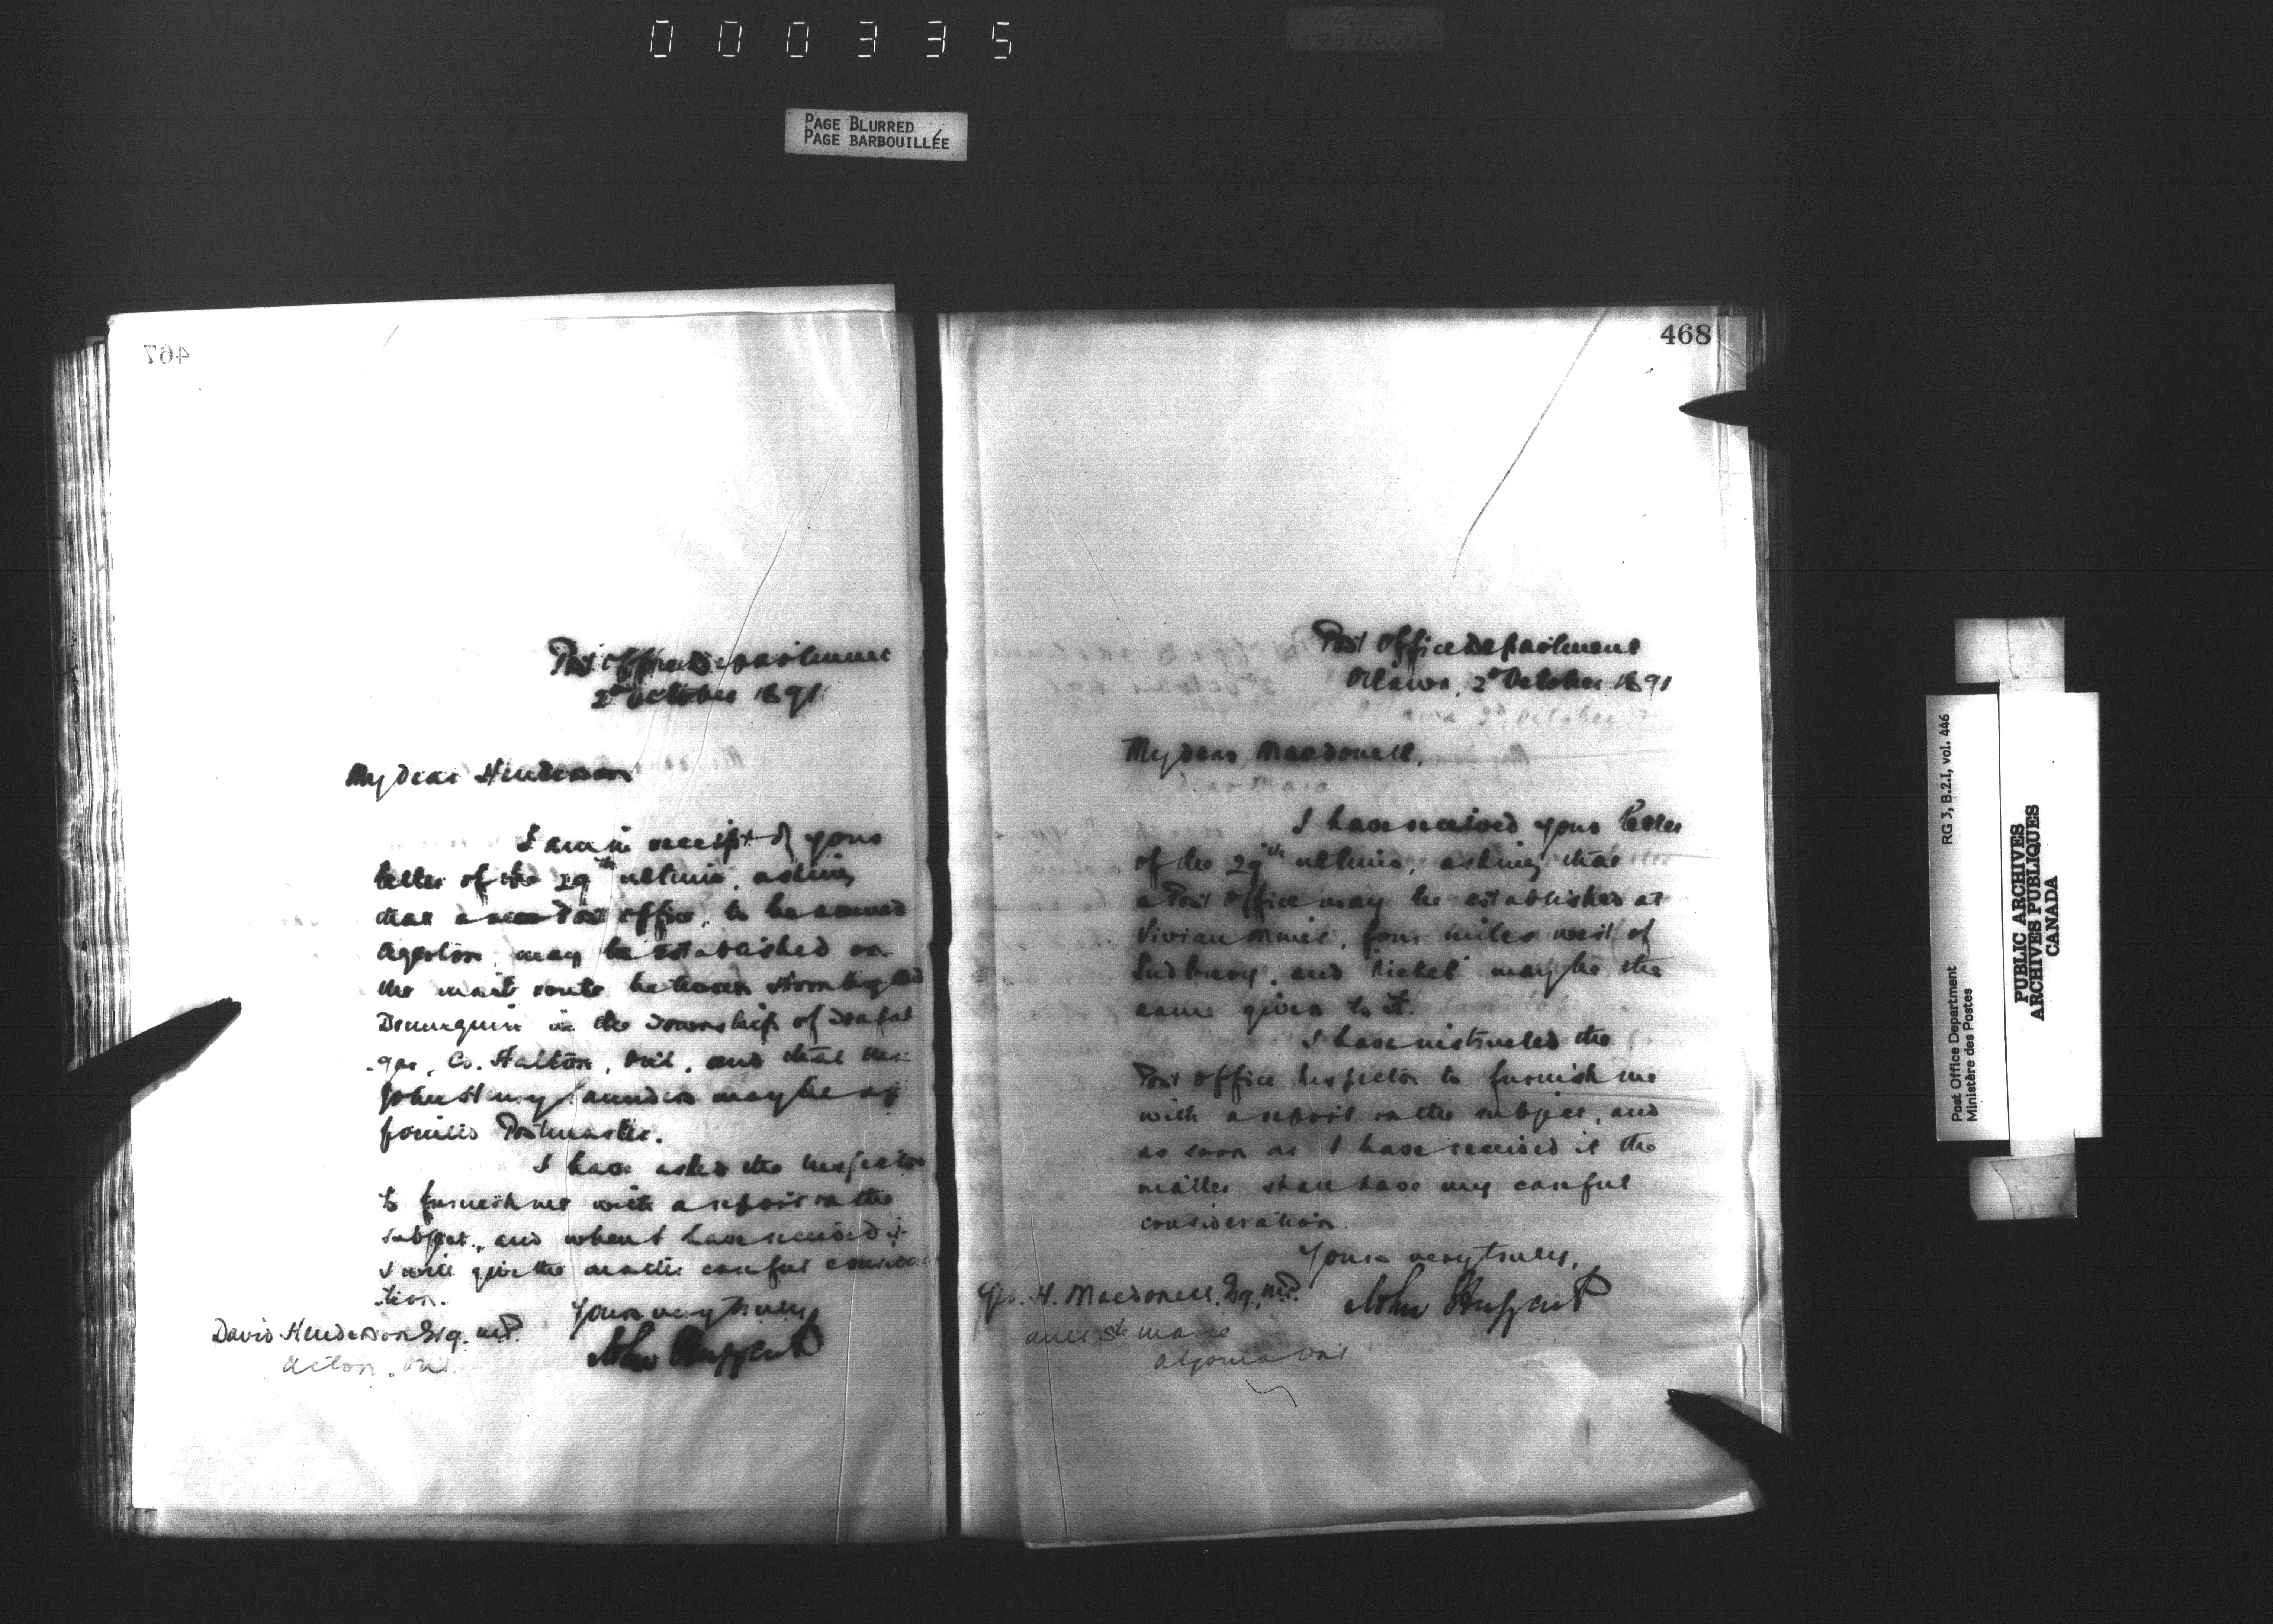 000335
PAGE BLURRED
PAGE BARBOUILLÉE
467
Post Office Department
2d October 1891
My dear Henderson
I am in receipt of your
letter of the 29th ultimo, asking
that a new Post Office, to be named
Agerton, may be established on
the mail route between
in the Township of
Co. Halton, Ont. and that Mr
John Henry Saunders may be ap
pointed Postmaster.
I have asked the Inspector
to furnish me with a report on the
subject, and when I have received it
I will give the matter careful considera
tion.
Yours very truly,
John Haggart
David Henderson Esq. M.P.
Acton, Ont.
468
Post Office Department
Ottawa, 2d October 1891
My dear Macdonell,
I have received your letter
of the 29th ultimo, asking that
a Post Office may be established at
Vivian Mines, four miles west of
Sudbury, and "Nickel" may be the
name given to it.
I have instructed the
Post Office Inspector to furnish me
with a report on the subject, and
as soon as I have received it the
matter shall have my careful
consideration.
Yours very truly,
John Haggart
Geo. H. Macdonell, Esq., M.P.
Ste Marie
Algoma Ont
Post Office Department
Ministère des Postes
RG 3, B.2.I, vol. 446
PUBLIC ARCHIVES
ARCHIVES PUBLIQUES
CANADA